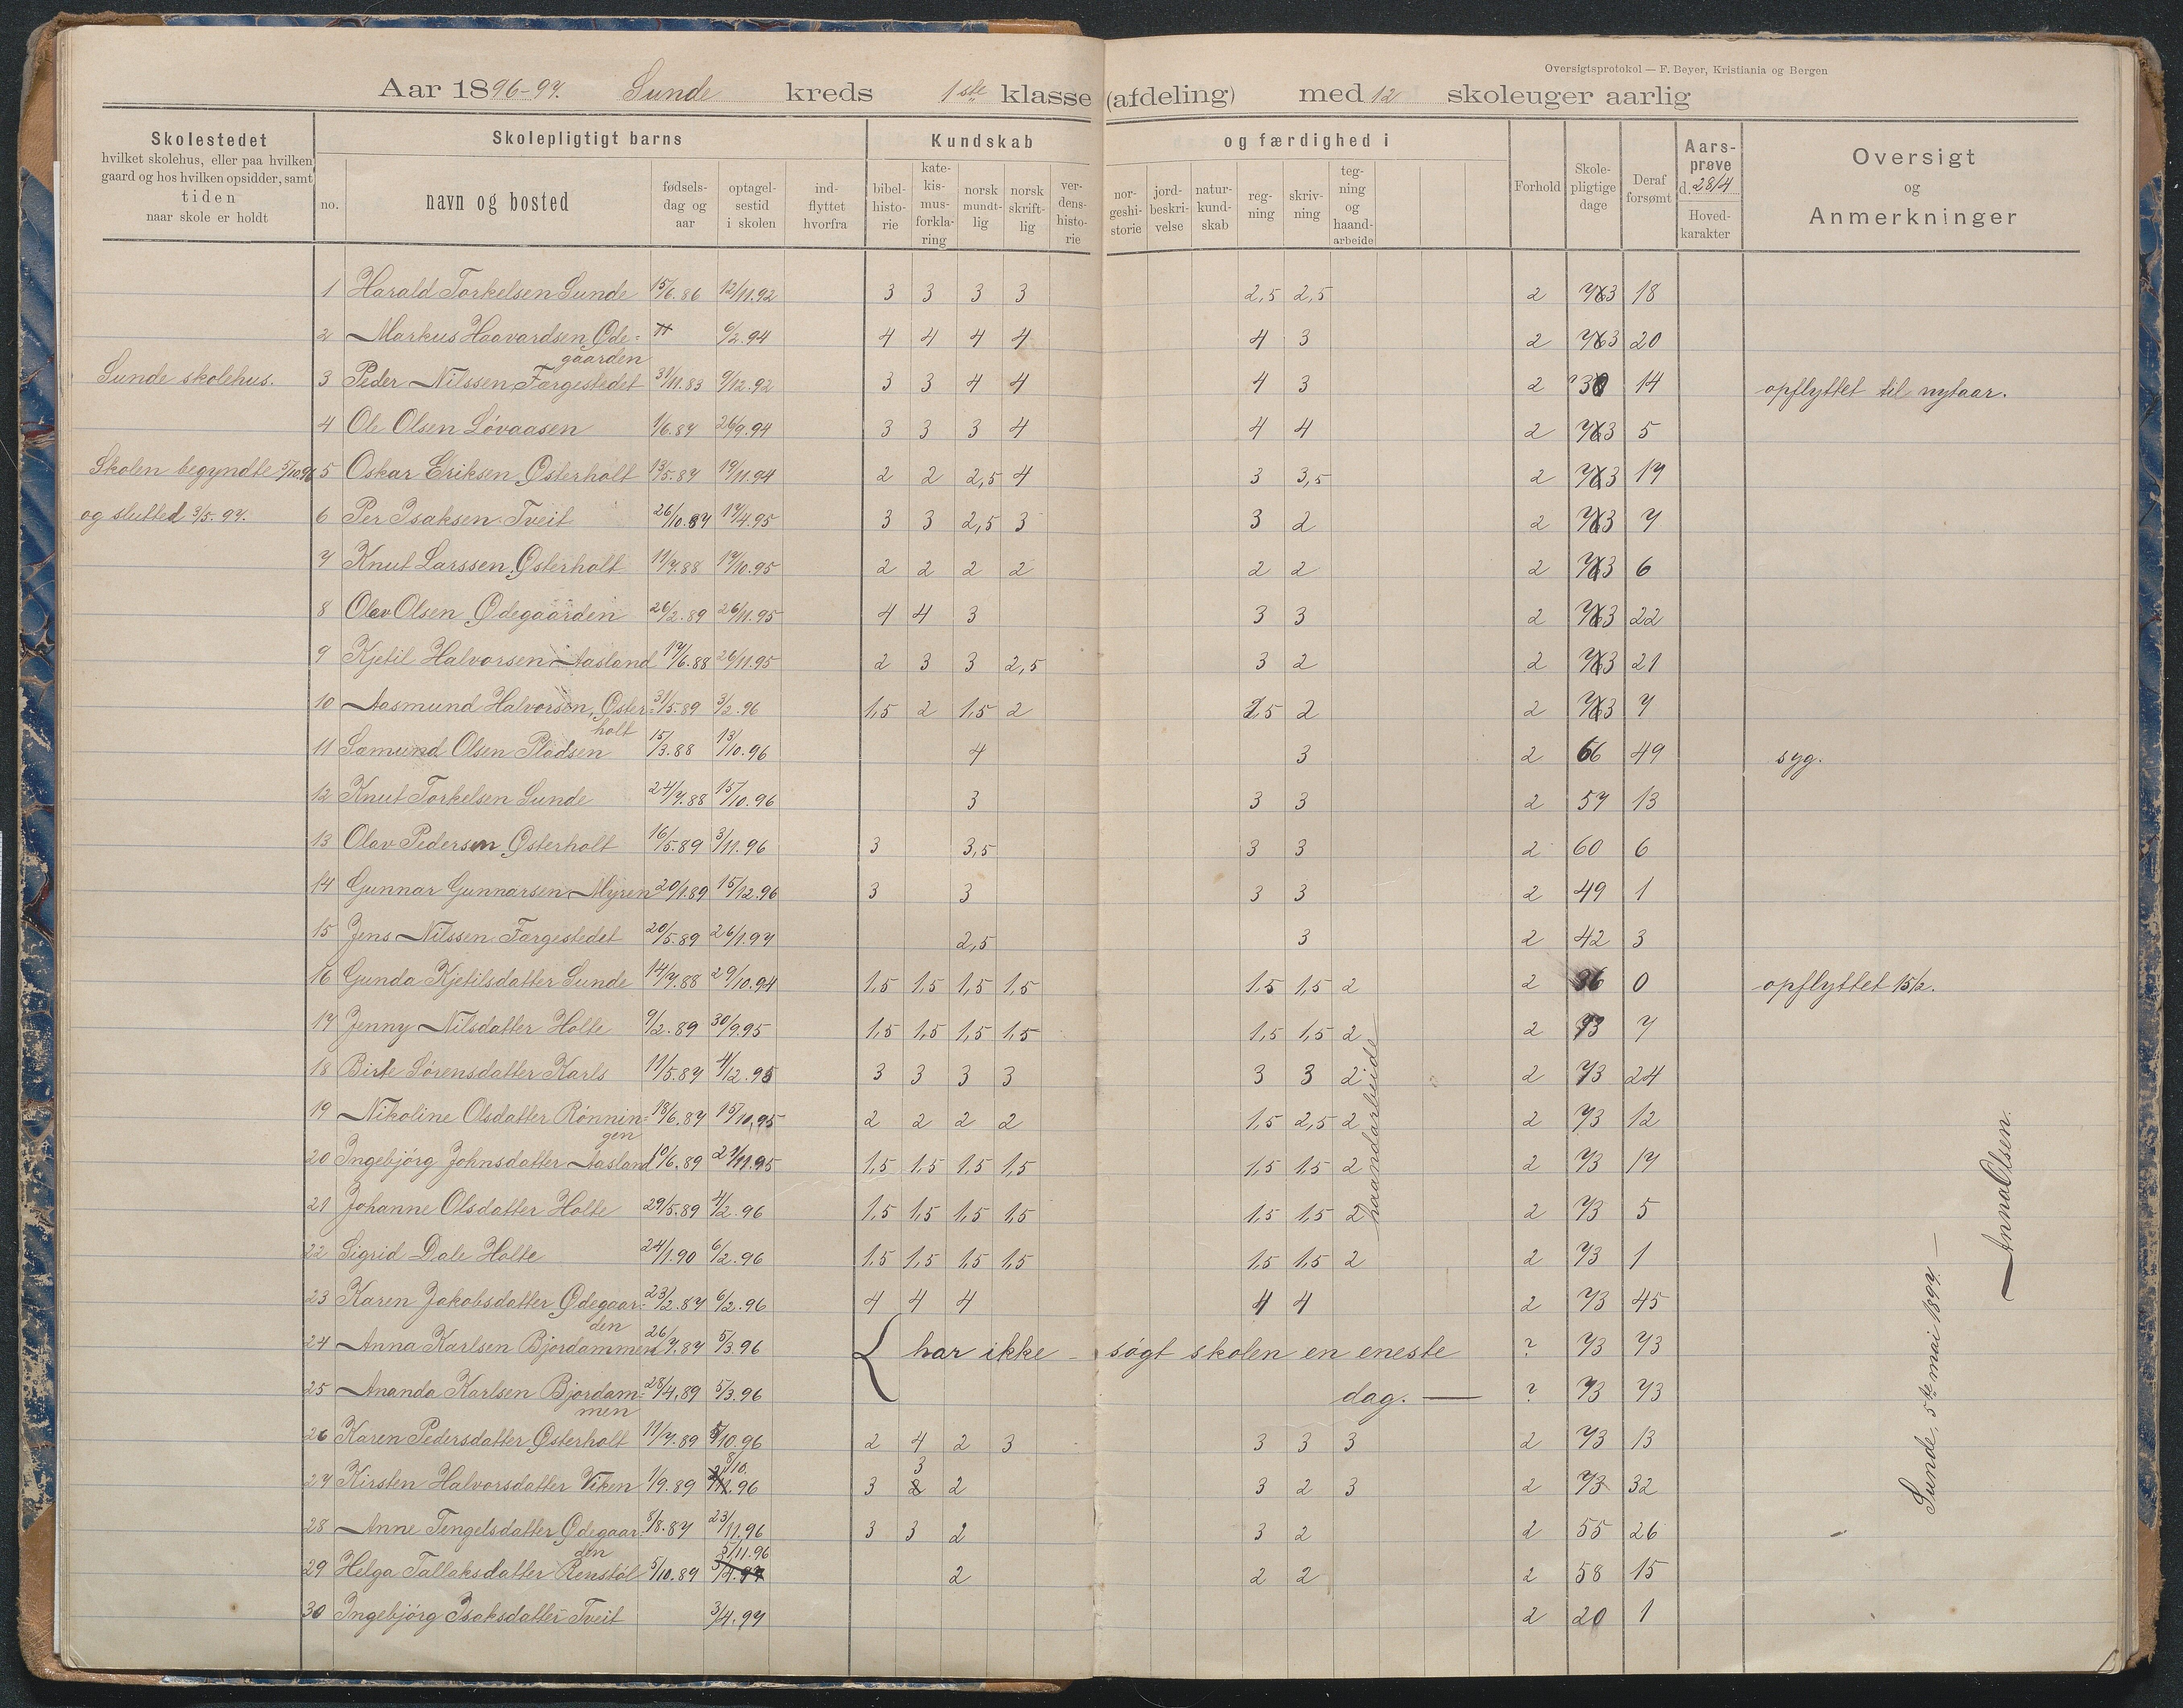 Oversigtsprotokol — F. Beyer, Kristiania og Bergen
Aar 1896-97. Sunde kreds 1ste klasse (afdeling) med 12 skoleuger aarlig
Skolestedet
hvilket skolehus, eller paa hvilken
gaard og hos hvilken opsidder, samt
tiden
naar skole er holdt
Skolepligtigt barns
no.
navn og bosted
fødsels-
dag og
aar
optagel-
sestid
i skolen
ind-
flyttet
hvorfra
Kundskab og færdighed i
bibel-
histo-
rie
kate-
kis-
mus-
forkla-
ring
norsk
mundt-
lig
norsk
skrift-
lig
ver-
dens-
histo-
rie
nor-
geshi-
storie
jord-
beskri-
velse
natur-
kund-
skab
reg-
ning
skriv-
ning
teg-
ning
og
haand-
arbeide
Forhold
Skole-
pligtige
dage
Deraf
forsømt
Aars-
prøve
d. 28/4
Hoved-
karakter
Oversigt
og
Anmerkninger
1 Harald Torkelsen Sunde 15/6.86 12/11.92 3 3 3 3 2,5 2,5 2 73 18
2 Markus Haavardsen Øde- 6/2.94 4 4 4 4 4 3 2 73 20
gaarden
Sunde skolehus. 3 Peder Nilssen Fargestedet 31/11.83 9/12.92 3 3 4 4 4 3 2 30 14 opflyttet til nytaar.
4 Ole Olsen Løvaasen 1/6.87 26/9.94 3 3 3 4 4 4 2 73 5
Skolen begyndte 5/10.96 5 Oskar Eriksen Østerholt 13/5.87 19/11.94 2 2 2,5 4 3 3,5 2 73 17
og slutted 3/5.97. 6 Per Isaksen Tveit 26/10.87 17/4.95 3 3 2,5 3 3 2 2 73 7
7 Knut Larssen Østerholt 11/7.88 17/10.95 2 2 2 2 2 2 2 73 6
8 Olav Olsen Ødegaarden 26/2.89 26/11.95 4 4 3 3 3 2 73 22
9 Kjetil Halvorsen Aasland 17/6.88 26/11.95 2 3 3 2,5 3 2 2 73 21
10 Aasmund Halvorson, Øster- 31/5.89 3/2.96 1,5 2 1,5 2 2,5 2 2 73 7
holt
11 Sæmund Olsen Pladsen 15/3.88 13/10.96 4 3 2 66 49 syg.
12 Knut Torkelsen Sunde 24/7.88 15/10.96 3 3 3 2 57 13
13 Olav Pedersen Østerholt 16/5.89 3/11.96 3 3,5 3 3 2 60 6
14 Gunnar Gunnarsen Myren 20/1.89 15/12.96 3 3 3 3 2 49 1
15 Jens Nilssen Fargestedet 20/5.89 26/1.97 2,5 3 2 42 3
16 Gunda Kjetilsdatter Sunde 14/7.88 29/10.94 1,5 1,5 1,5 1,5 1,5 1,5 2 2 36 0 opflyttet 15/2.
17 Jenny Nilsdatter Holte 9/2.89 30/9.95 1,5 1,5 1,5 1,5 1,5 1,5 2 2 73 7
18 Birte Sørensdatter Karls 11/5.87 4/12.95 3 3 3 3 3 3 2 2 73 24
19 Nikoline Olsdatter Rønnin- 18/6.87 15/10.95 2 2 2 2 1,5 2,5 2 2 73 12
gen
20 Ingebjørg Johnsdatter Aasland 10/6.89 27/11.95 1,5 1,5 1,5 1,5 1,5 1,5 2 2 73 17
21 Johanne Olsdatter Holte 29/5.89 4/2.96 1,5 1,5 1,5 1,5 1,5 1,5 2 2 73 5
22 Sigrid Dale Holte 24/1.90 6/2.96 1,5 1,5 1,5 1,5 1,5 1,5 2 2 73 1
haandarbeide
23 Karen Jakobsdatter Ødegaar- 23/2.87 6/2.96 4 4 4 4 4 2 73 45
den
24 Anna Karlsen Bjordammen 26/7.87 5/3.96 har ikke søgt skolen en eneste ? 73 73
25 Ananda Karlsen Bjordam- 28/4.89 5/3.96 dag. — ? 73 73
men
26 Karen Pedersdatter Østerholt 11/7.89 5/10.96 2 4 2 3 3 3 3 2 73 13
8/10. 3
27 Kirsten Halvorsdatter Viken 1/9.89 96 3 2 2 3 2 3 2 73 32
28 Anne Tengelsdatter Ødegaar- 8/8.87 23/11.96 3 3 2 3 2 2 55 26
den 5/11.96
29 Helga Tallaksdatter Renstøl 5/10.89 3/4.97 2 2 2 2 58 15
30 Ingebjørg Isaksdatter Tveit 3/4.97 2 20 1
Sunde, 5te mai 1897 —
Anna Olsen.